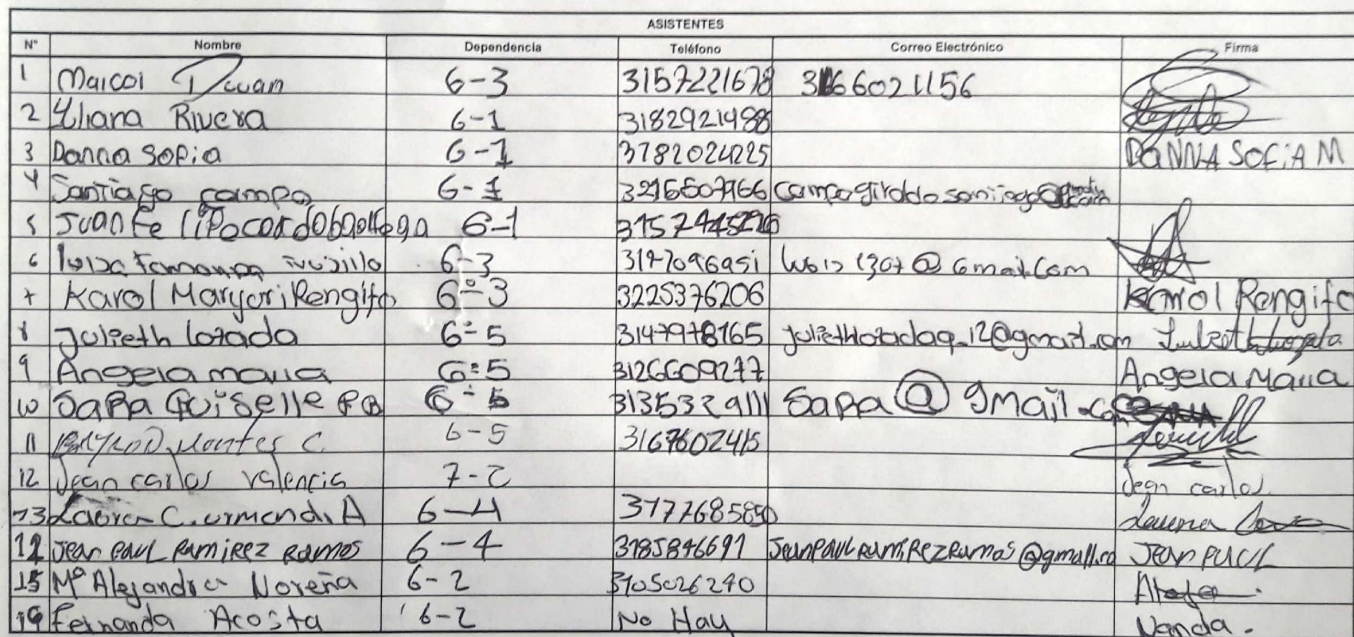 ASISTENTES
N° Nombre Dependencia Teléfono Correo Electrónico Firma
1 Maicol Duvan 6-3 3157221678 3166021156
2 Yliana Rivera 6-1 3182921988
3 Danna Sofia 6-1 3182024225 DANNA SOFIA M
4 Santiago campo 6-1 3216607966
5 Juan Felipe cordoba ortega 6-1
6 luisa fernanda trujillo 6-3 3147096951 @Gmail.com
7 Karol Maryori Rengifo 6-3 3225376206 Karol Rengifo
8 Julieth lozada 6-5 3147978165 juliethlozadaq.12@gmail.com
9 Angela maria 6-5 3126609277 Angela Maria
10 SaRa Guiselle PB 6-5 3135329111 SaRa@gmail.com
11 Montes C. 6-5 3167602415
12 Jean carlos valencia 7-2 Jean carlos
13 C. 6-4 3177685850
14 Jean PAUL RamiRez Ramos 6-4 3185846691 JeanPAULRamiRezRamos@gmail.co Jean PAUL
15 Mª Alejandra Noreña 6-2 3105026290
16 Fernanda Acosta 6-2 No Hay Nanda.